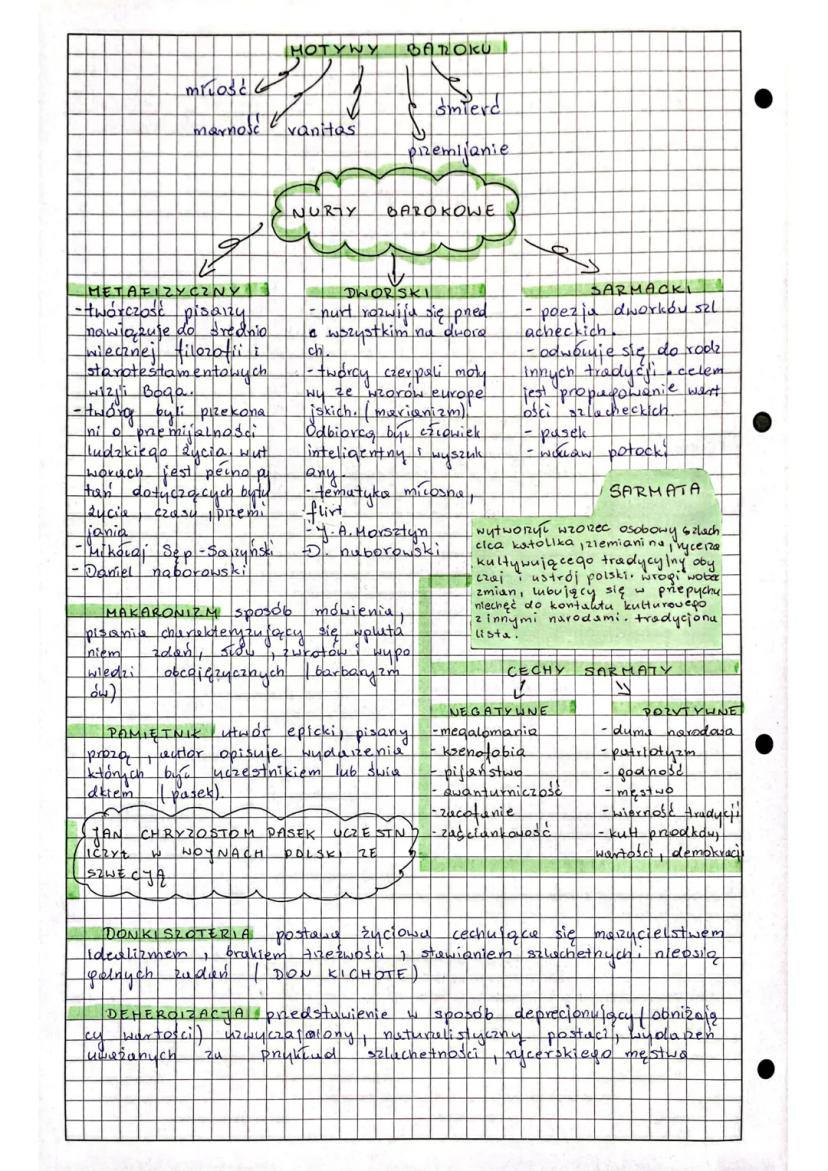 MOTYWY BAROKU
miłość
marność
vanitas
przemijanie
śmierć
NURTY BAROKOWE
METAFIZYCZNY
-twórczość pisarzy
nawiązuje do średnio
wiecznej filozofii i
starotestamentowych
wizji Boga.
-twórcy byli przekona
ni o przemijalności
ludzkiego życia. wut
worach jest pełno py
tań dotyczących bytu
życia, czasu, przemi
jania
-Mikołaj Sęp-Sarzyński
-Daniel naborowski
DWORSKI
-nurt rozwija się przed
e wszystkim na dwora
ch.
-twórcy czerpali moty
wy ze wzorów europe
jskich. (marianizm)
Odbiorcą był człowiek
inteligentny i wyszuk
any.
-tematyka miłosna,
flirt
-J.A.Morsztyn
-D. naborowski
SARMACKI
- poezja dworków szl
acheckich.
- odwołuje się do rodz
innych tradycji. celem
jest propagowanie wart
ości szlacheckich.
- pasek
- wacław potocki
SARMATA
wytworzył wzorzec osobowy szlach
cica katolika, ziemianina, rycerza
kultywującego tradycyjny oby
czaj i ustrój polski. wrogi wobec
zmian, lubujący się w przepychu
niechęć do kontaktu kulturowego
z innymi narodami. tradycjona
lista.
MAKARONIZM sposób mówienia,
pisania charakteryzujący się wpluta
niem zdań, słów, zwrotów i wypo
wiedzi obcojęzycznych (barbaryzm
ów)
PAMIĘTNIK utwór epicki, pisany
prozą, autor opisuje wydarzenia
których był uczestnikiem lub świa
dkiem (pasek).
JAN CHRYZOSTOM PASEK UCZESTN
ICZYŁ W WOJNACH POLSKI ZE
SZWECJĄ
CECHY SARMATY
NEGATYWNE
-megalomania
- ksenofobia
- pijaństwo
- awanturniczość
-zacofanie
-zaściankowość
POZYTYWNE
-duma narodowa
-patriotyzm
- godność
-męstwo
-wierność tradycji
-kult przodków,
wartości, demokracji
DONKISZOTERIA postawa życiowa cechująca się marzycielstwem
idealizmem, brakiem trzeźwości, stawianiem szlachetnych i nieosią
galnych zadań (DON KICHOTE)
DEHEROIZACJA przedstawienie w sposób deprecjonujący (obniżają
cy wartości) uzwyczajniony, naturalistyczny postaci, wydarzeń
uważanych za przykład szlachetności, rycerskiego męstwa